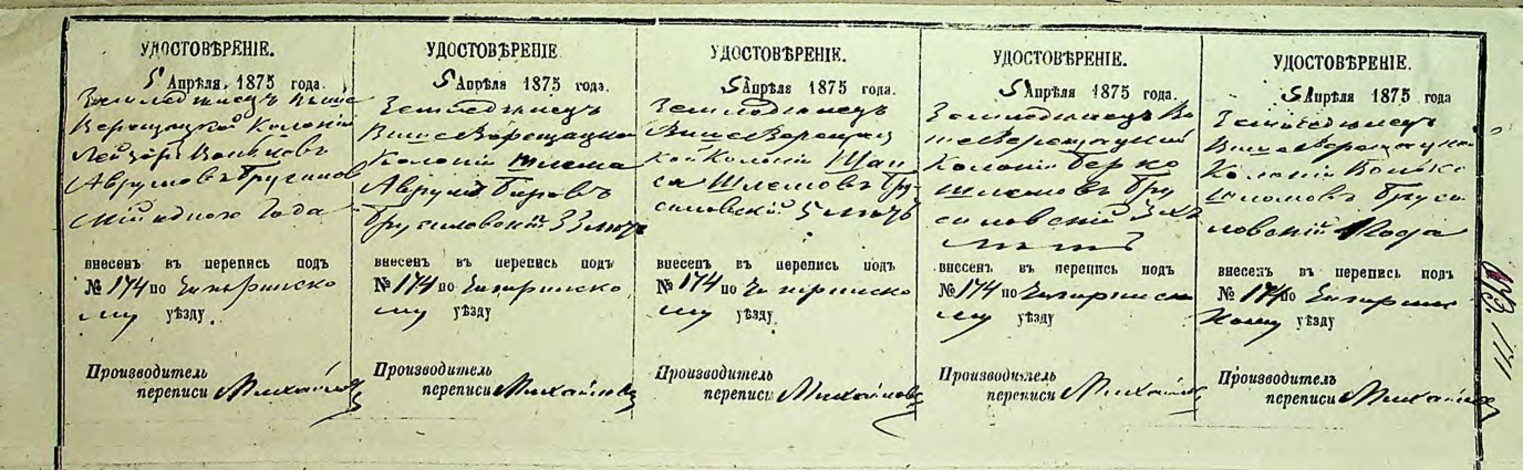 УДОСТОВѢРЕНІЕ.
5 Апрѣля 1875 года.
Земледѣлецъ Выше
Верещацкой Колоніи
Лейзоръ
Аврумовъ Брусилов
скій одного года
внесенъ въ перепись подъ
№ 174 по Чигиринско
му уѣзду.
Производитель
переписи Михайловъ
УДОСТОВѢРЕНІЕ
5 Апрѣля 1875 года.
Земледѣлецъ
Вишеверещацко
Колоніи Шлема
Аврумъ
Брусиловскій 33 лѣтъ
внесенъ въ перепись подъ
№ 174 по Чигиринско
му уѣзду
Производитель
переписи Михайловъ
УДОСТОВѢРЕНІЕ.
5 Апрѣля 1875 года.
Земледѣлецъ
Вишеверещац
кой Колоніи
Шлемовъ Бру
силовскій 5 лѣтъ
внесенъ въ перепись подъ
№ 174 по Чигиринско
му уѣзду
Производитель
переписи Михайловъ
УДОСТОВѢРЕНІЕ.
5 Апрѣля 1875 года.
Земледѣлецъ Ви
шеверещацкой
Колоніи Берко
Шлемовъ Бру
силовскій 3хъ
лѣтъ
внесенъ въ перепись подъ
№ 174 по Чигиринско
му уѣзду
Производитель
переписи Михайловъ
УДОСТОВѢРЕНІЕ.
5 Апрѣля 1875 года
Земледѣлецъ
Вишеверещацкой
Колоніи
Шломовъ Бруси
ловскій 1 года
внесенъ въ перепись подъ
№ 174 по Чигирин
скому уѣзду
Производитель
переписи Михайловъ